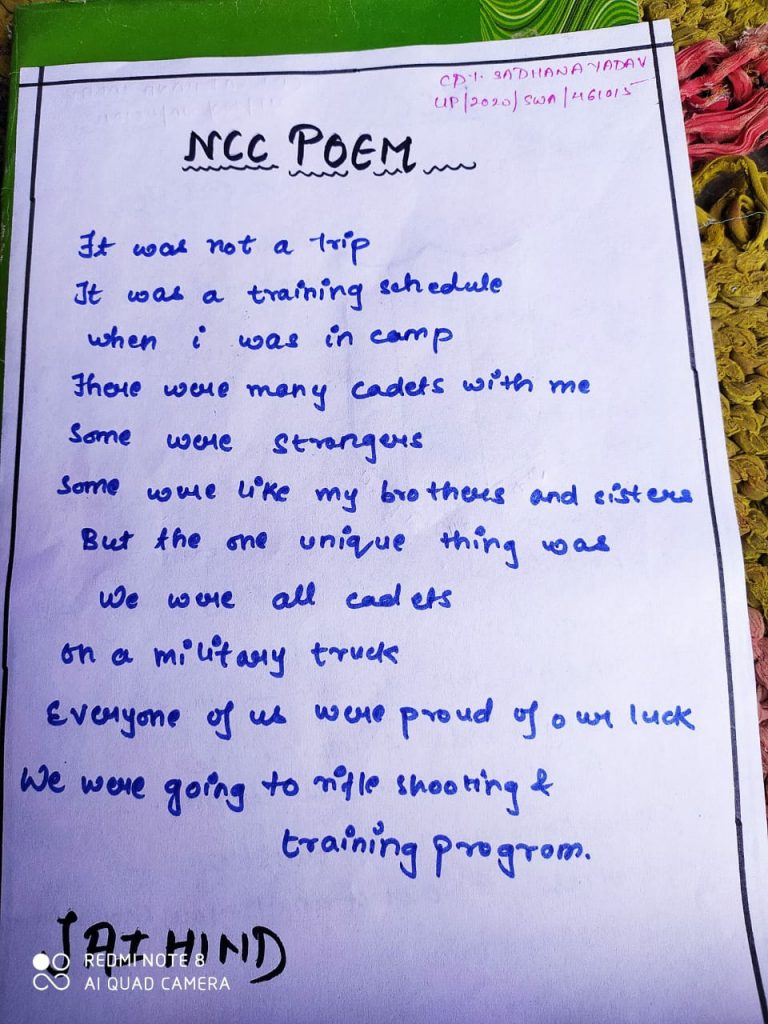 CDT. SADHANA YADAV
UP/2020/SWA/461015
NCC POEM
It was not a trip
It was a training schedule
when i was in camp
There were many cadets with me
Some were strangers
Some were like my brothers and sisters
But the one unique thing was
We were all cadets
on a military truck
Everyone of us were proud of our luck
We were going to rifle shooting &
training program.
JAI HIND
REDMI NOTE 8
AI QUAD CAMERA